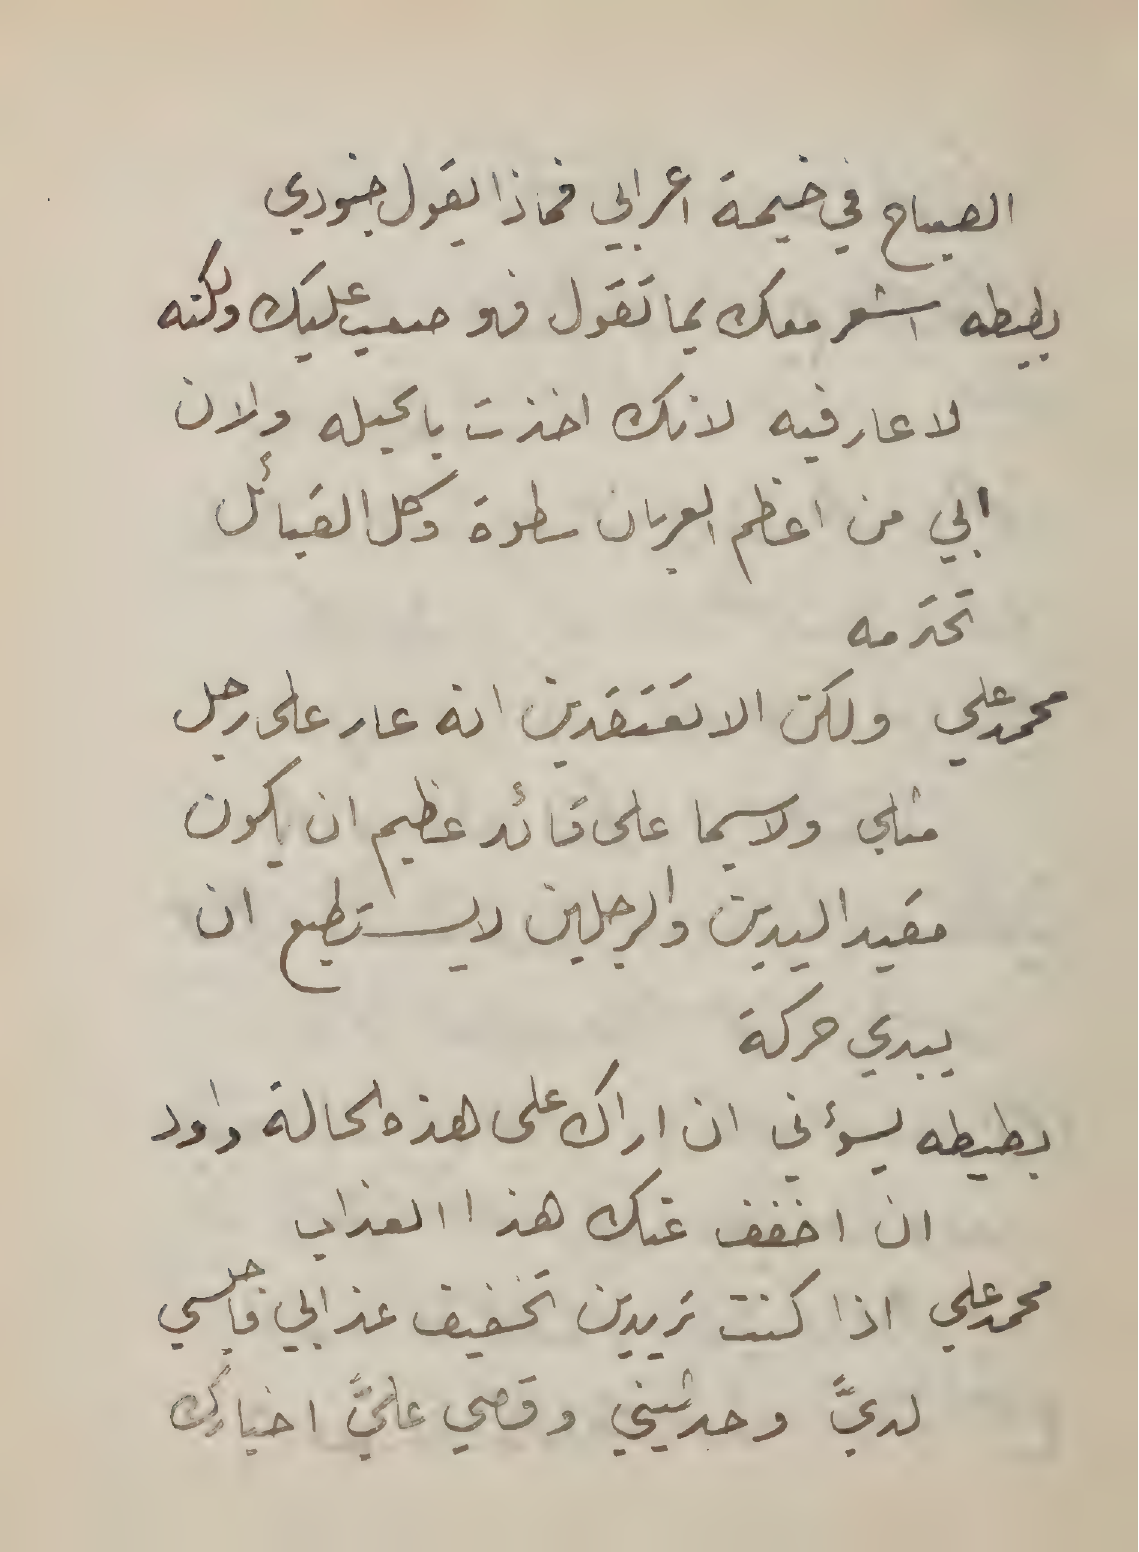 الصباح في خيمة اعرابي فماذا يقول جنودي
بطيطه اشعر معك بما تقول فهو صعب عليك ولكنه
لا عار فيه لانك اخذت بالحيله ولان
ابي من اعظم العربان سطوة وكل القبائل
تحترمه
محمد علي ولكن الا تعتقدين انه عار على رجل
مثلي ولاسيما على قائد عظيم ان يكون
مقيد اليدين والرجلين لا يستطيع ان
يبدي حركة
بطيطه يسؤني ان اراك على هذه الحالة واود
ان اخفف عنك هذا العذاب
محمد علي اذا كنت تريدين تخفيف عذابي فاجلسي
لديَّ وحدثيني وقصي عليَّ اخبارك